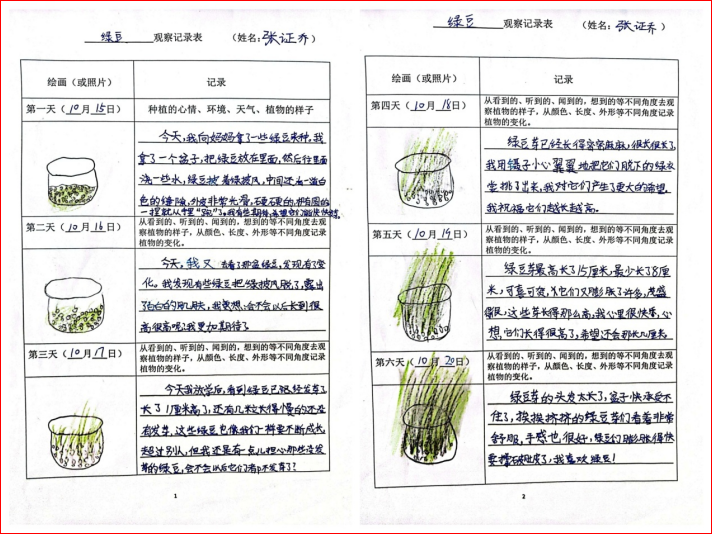 绿豆 观察记录表 （姓名：张证乔）
绘画（或照片） 记录
第一天（10月15日） 种植的心情、环境、天气、植物的样子
今天，我向妈妈拿了一些绿豆来种，我
拿了一个盆子，把绿豆放在里面，然后往里面
浇一些水，绿豆披着绿披风，中间还有一道白
色的缝隙，外皮非常光滑，硬硬的，
第二天（10月16日）
从看到的、听到的、闻到的，想到的等不同角度去观
察植物的样子，从颜色、长度、外形等不同角度记录
植物的变化。
今天，我又去看了那盆绿豆，发现有了变
化。我发现有些绿豆把绿披风脱了，露出
了白白的肌肤，我要想：会不会以后长到很
高很高呢？我更加期待了
第三天（10月17日）
从看到的、听到的、闻到的，想到的等不同角度去观
察植物的样子，从颜色、长度、外形等不同角度记录
植物的变化。
今天我放学后，看到绿豆已经发芽了
长了1厘米高了，还有几粒长得慢的还没
有发芽，这些绿豆也像我们一样要不断成长
超过别人，但我还是有一点儿担心那些没发
芽的绿豆，会不会以后它们都不发芽了？
1
绿豆 观察记录表 （姓名：张证乔）
绘画（或照片） 记录
第四天（10月18日）
从看到的、听到的、闻到的，想到的等不同角度去观
察植物的样子，从颜色、长度、外形等不同角度记录
植物的变化。
绿豆芽已经长得密密麻麻，很长很长了，
我用镊子小心翼翼地把它们脱下的绿衣
堂挑了出来，我对它们产生了更大的希望，
我祝福它们越长越高。
第五天（10月19日）
从看到的、听到的、闻到的，想到的等不同角度去观
察植物的样子，从颜色、长度、外形等不同角度记录
植物的变化。
绿豆芽最高长了15厘米，最少长了8厘
米，可喜可贺，它们又膨胀了许多，茂盛
极，这些芽长得那么高，我心里很快乐，心
想，它们长得很高了，希望还会那长几厘米
第六天（10月20日）
从看到的、听到的、闻到的，想到的等不同角度去观
察植物的样子，从颜色、长度、外形等不同角度记录
植物的变化。
绿豆芽的头发太长了，盆子快承受不
住了，挨挨挤挤的绿豆芽们看着非常
舒服，手感也很好，绿豆们膨胀得快
要撑破肚皮了，我喜欢绿豆！
2